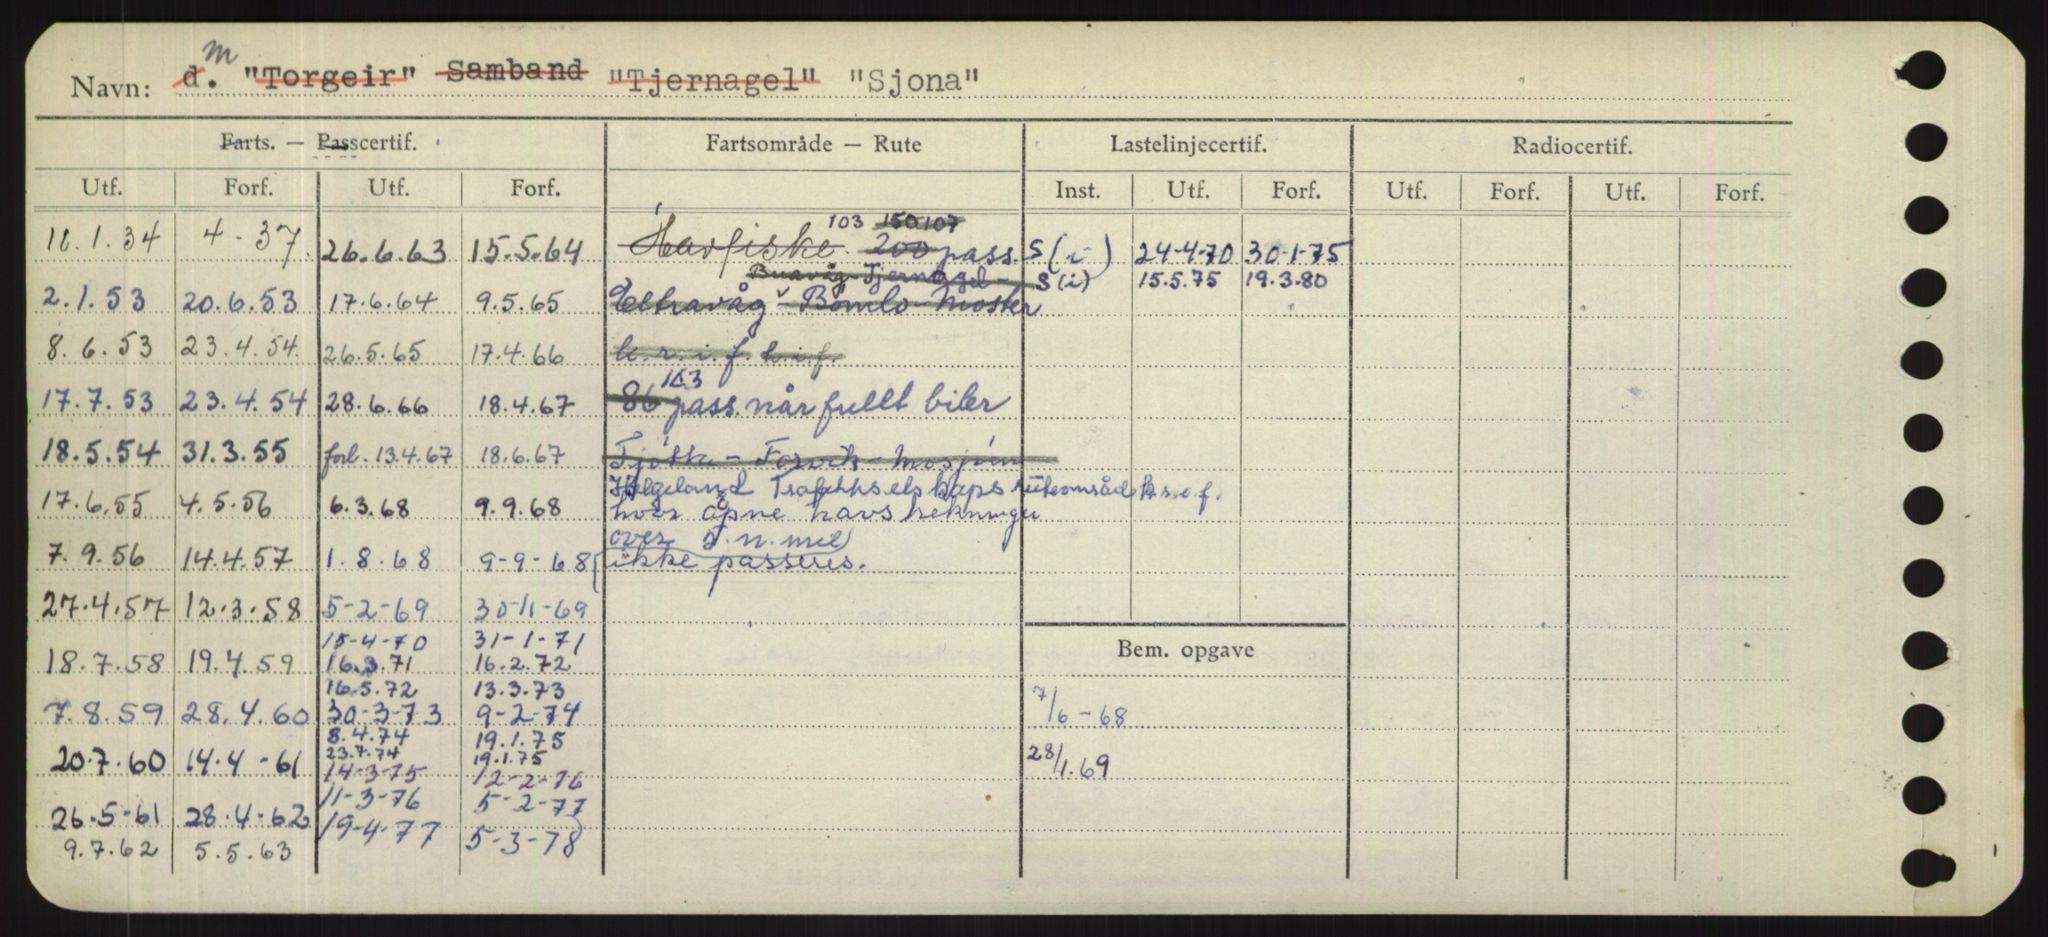 Navn: d. m "Torgeir" Samband "Tjernagel" "Sjona"
Farts. — Passcertif. Fartsområde — Rute Lastelinjecertif. Radiocertif.
Utf. Forf. Utf. Forf. Inst. Utf. Forf. Utf. Forf. Utf. Forf.
103 150 107
11.1.34 4-37 26.6.63 15.5.64 Havfiske 200 pass. S (i) 24-4-70 30-1-75
Buavåg-Tjernagel- S (i) 15.5.75 19.3.80
2.1.53 20.6.53 17.6.64 9.5.65 Eltravåg - Bömlo - Moster
8.6.53 23.4.54 26.5.65 17.4.66 k.r.i.f. k.i.f.
103
17.7.53 23.4.54 28.6.66 18.4.67 86 pass. når fullt biler
18.5.54 31.3.55 forl. 13.4.67 18.6.67 Tjötta - Forvik - Mosjöen
Helgeland Trafikkselskaps ruteområde k.r.i.f.
17.6.55 4.5.56 6.3.68 9.9.68 hvor åpne havstrekninger
over 5 n. mil
7.9.56 14.4.57 1.8.68 9-9-68 ikke passeres.
27.4.57 12.3.58 5-2-69 30-11-69
15-4-70 31-1-71 Bem. opgave
18.7.58 19.4.59 16.3.71 16.2.72
16.5.72 13.3.73
7.8.59 28.4.60 30-3-73 9-2-74 7/6-68
8.4.74 19.1.75
20.7.60 14.4-61 23.7.74 19.1.75 28/1.69
14-3-75 12-2-76
11-3-76 5-2-77
26.5-61 28.4-62 19-4-77 5-3-78
9.7.62 5.5.63